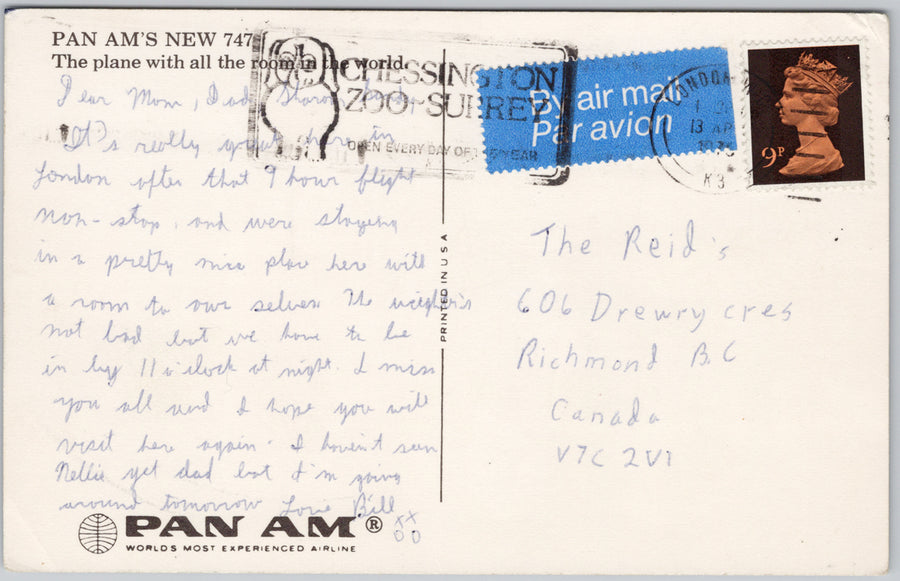 PAN AM'S NEW 747
The plane with all the room in the world.
Dear Mom, Dad, Sharon,
It's really great here in
London after that 9 hour flight
non-stop, and were staying
in a pretty nice place here with
a room to our selves. The weather's
not bad but we have to be
in by 11 o'clock at night. I miss
you all and I hope you will
visit here again. I haven't seen
Nellie yet dad but I'm going
around tomorrow Love Bill
xx
oo
PAN AM®
WORLDS MOST EXPERIENCED AIRLINE
PRINTED IN U S A
CHESSINGTON
ZOO SURREY
OPEN EVERY DAY OF THE YEAR
By air mail
Par avion
LONDON
13 AP
9P
The Reid's
606 Drewry cres
Richmond B.C
Canada
V7C 2V1